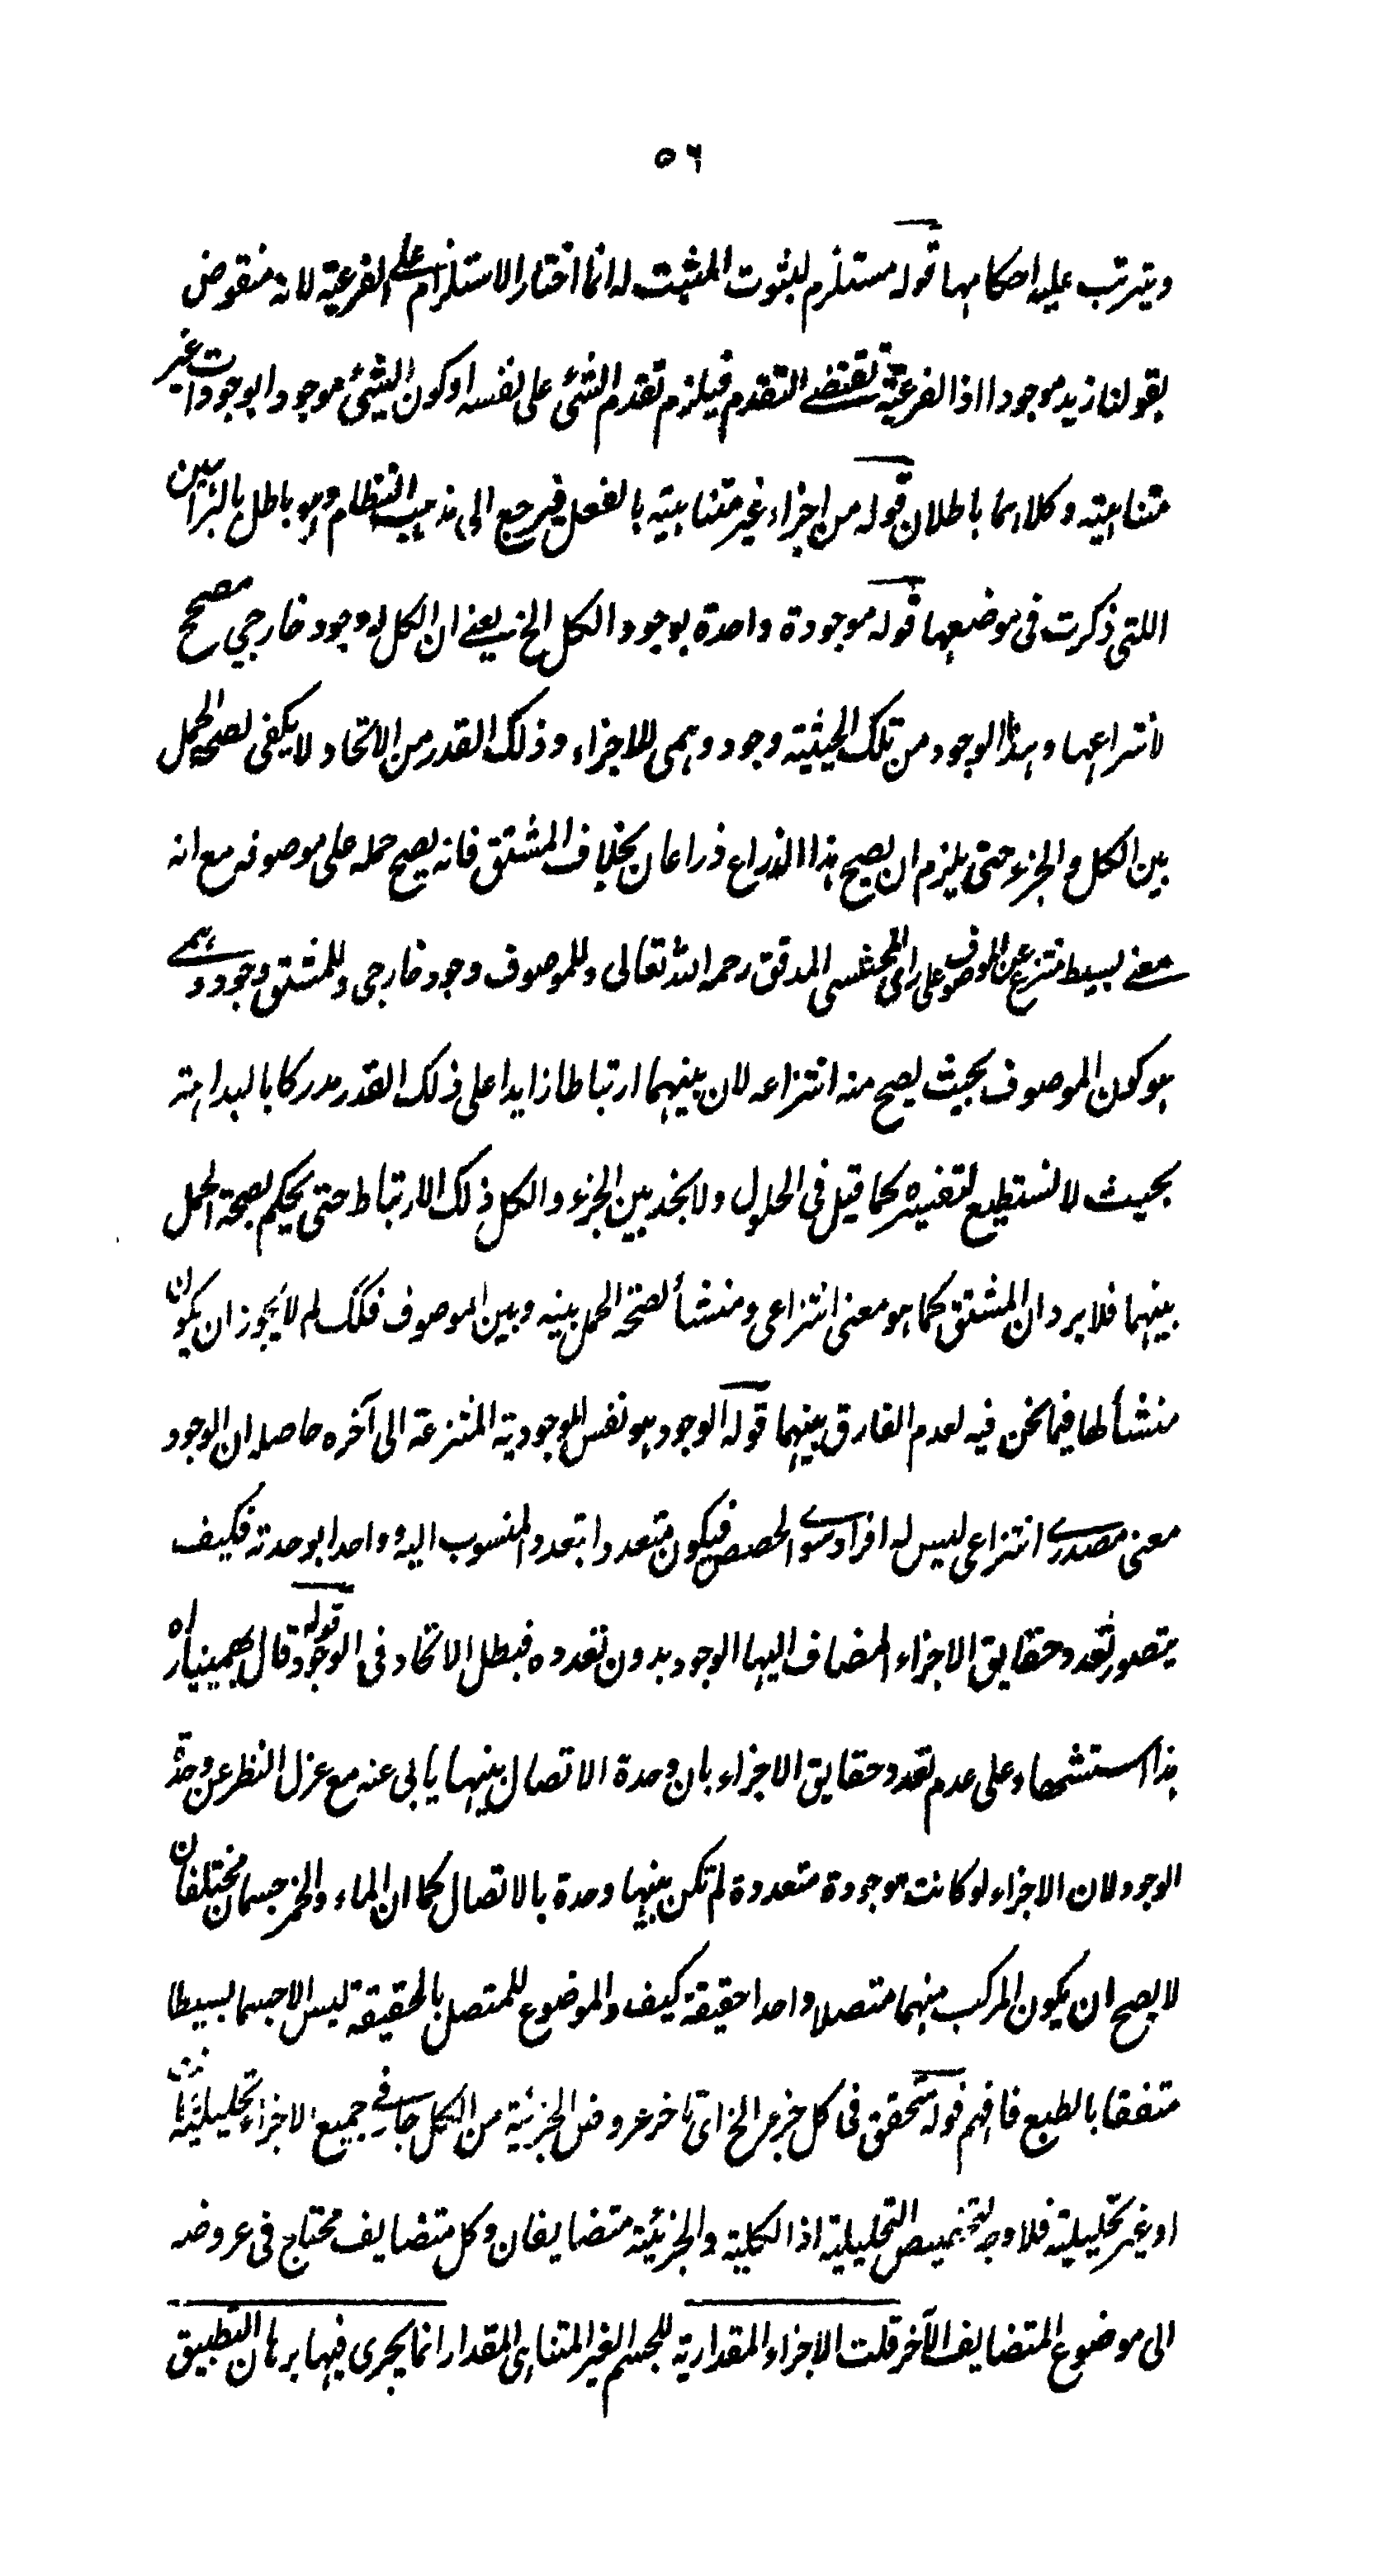 ٥٦
ويترتب عليه احكامها قوله مستلزم لثبوت المثبت له انما اختار الاستلزام على الفرعية لانه منقوض
بقولنا زيد موجود اذ الفرعية تقتضے التقدم فيلزم تقدم الشئ على نفسه او كون الشئ موجودا بوجودات غير
متناهية وكلاهما باطلان قوله من اجزاء غير متناهية بالفعل فيرجع الى مذهب النظام وهو باطل بالبراهين
اللتى ذكرت فى موضعها قوله موجودة واحدة بوجود الكل الخ يعنے ان الكل له وجود خارجي مصحح
لانتزاعها وهذا الوجود من تلك الحيثية وجود وهمى للاجزاء وذلك القدر من الاتحاد لا يكفى لصحة الحمل
بين الكل والجزء حتى يلزم ان يصح هذا الذراع ذراعان بخلاف المشتق فانه يصح حمله على موصوفه مع انه
معنے بسيط منتزع عن الموصوف على راى المحشى المدقق رحمه الله تعالى وللموصوف وجود خارجى وللمشتق وجود وهمے
هو كون الموصوف بحيث يصح منه انتزاعه لان بينهما ارتباطا زايدا على ذلك القدر مدركا بالبداهة
بحيث لا نستطيع لتفسيره كما قيل فى الحلول ولا نجد بين الجزء والكل ذلك الارتباط حتى يحكم بصحة الحمل
بينهما فلا يرد ان المشتق كما هو معنى انتزاعى ومنشأ لصحة الحمل بينه وبين الموصوف فكك لم لا يجوز ان يكون
منشأ لها فيما نحن فيه لعدم الفارق بينهما قوله الوجود هو نفس الموجودية المنتزعة الى آخره حاصله ان الوجود
معنى مصدرے انتزاعى ليس له افراد سوے الحصص فيكون متعددا بتعدد المنسوب اليه وواحدا بوحدته فكيف
يتصور تعدد حقايق الاجزاء المضاف اليها الوجود بدون تعدده فبطل الاتحاد فى الوجود قوله قال بهمينيار اه
هذا استشهاد على عدم تعدد حقايق الاجزاء بان وحدة الاتصال بينها يابى عنه مع عزل النظر عن وحدة
الوجود لان الاجزاء لو كانت موجودة متعددة لم تكن بينها وحدة بالاتصال كما ان الماء والخمر جسمان مختلفان
لا يصح ان يكون المركب منهما متصلا واحدا حقيقة كيف والموضوع للمتصل بالحقيقة ليس الا جسما بسيطا
متفقا بالطبع فافهم قوله متحقق فى كل جزء الخ اى تاخر عروض الجزئية من الكل جار فے جميع الاجزاء تحليلية كانت
او غير تحليلية فلا وجه لتخصيص التحليلية اذ الكلية والجزئية متضايفان وكل متضايف محتاج فى عروضه
الى موضوع المتضايف الآخر قلت الاجزاء المقدارية للجسم الغير المتناهى المقدار انما يجرى فيها برهان التطبيق